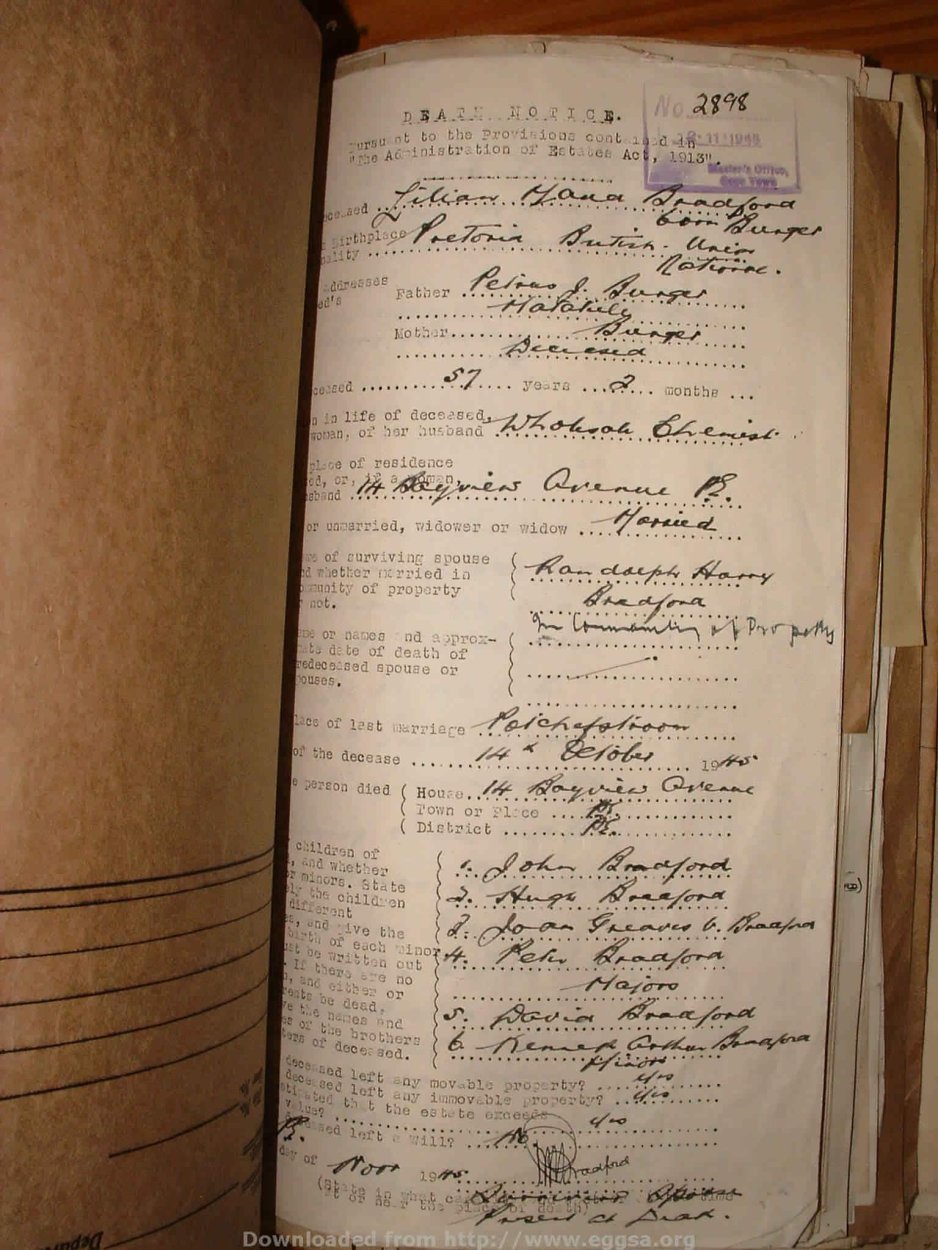 DEATH NOTICE.
No 2898
Pursuant to the Provisions contained in
"The Administration of Estates Act, 1913".
11 1945
Master's Office,
Cape Town
ceased Lilian Maud Bradford
born Burger
Birthplace Pretoria British - Union
ality National.
addresses
ed's Father Petrus J. Burger
Matatiele
Mother Burger
Deceased
ceased 57 years 2 months
n in life of deceased,
woman, of her husband Wholesale Chemist
place of residence
ed, or, if a woman,
usband 14 Bayview Avenue P.E.
or unmarried, widower or widow Married
me of surviving spouse
nd whether married in
community of property
r not.
Randolph Harry
Bradford
In Community of Property
me or names and approx-
ate date of death of
redeceased spouse or
pouses.
lace of last marriage Potchefstroom
of the decease 14th October 1945
e person died ( House 14 Bayview Avenue
( Town or Place P.E.
( District P.E.
children of
, and whether
r minors. State
ely the children
different
es, and give the
birth of each minor
ust be written out
. If there are no
n, and either or
rents be dead,
ve the names and
es of the brothers
ters of deceased.
1. John Bradford
2. Hugh Bradford
3. Joan Greaves b. Bradford
4. Peter Bradford
Majors
5. David Bradford
6. Kenneth Arthur Bradford
Minors
deceased left any movable property? yes
deceased left any immovable property? yes
stimated that the estate exceeds
value? yes
deceased left a will? No
P.E.
day of Novr 1945
Bradford
(State in what
at or near the place of death)
Surviving Spouse
Present at Death.
Depart
Downloaded from http://www.eggsa.org